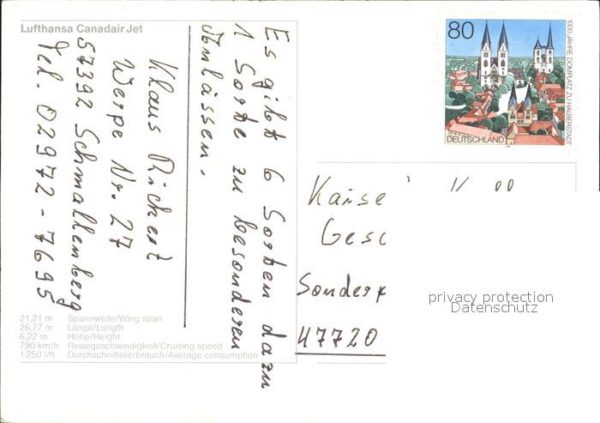 Lufthansa Canadair Jet
Es gibt 6 Sorten dazu
1 Sorte zu besonderen
Anlässen.
Klaus Richert
Werpe Nr. 27
57392 Schmallenberg
Tel. 02972-7695
21,21 m Spannweite/Wing span
26,77 m Länge/Length
6,22 m Höhe/Height
790 km/h Reisegeschwindigkeit/Cruising speed
1250 l/h Durchschnittsverbrauch/Average consumption
80
1000 JAHRE DOMPLATZ ZU HALBERSTADT
DEUTSCHLAND
Kaise
Gesc
Sonder
47720
privacy protection
Datenschutz